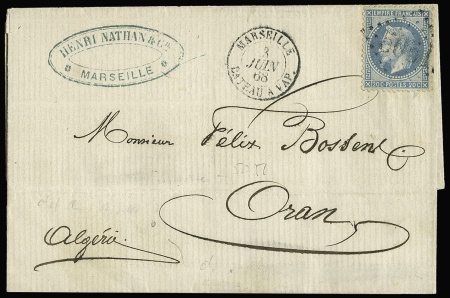 HENRI NATHAN & Cie
MARSEILLE
MARSEILLE
3
JUIN
68
BATEAU A VAP.
EMPIRE FRANÇAIS
20 C POSTES 20 C
Monsieur Félix
Oran
Algérie